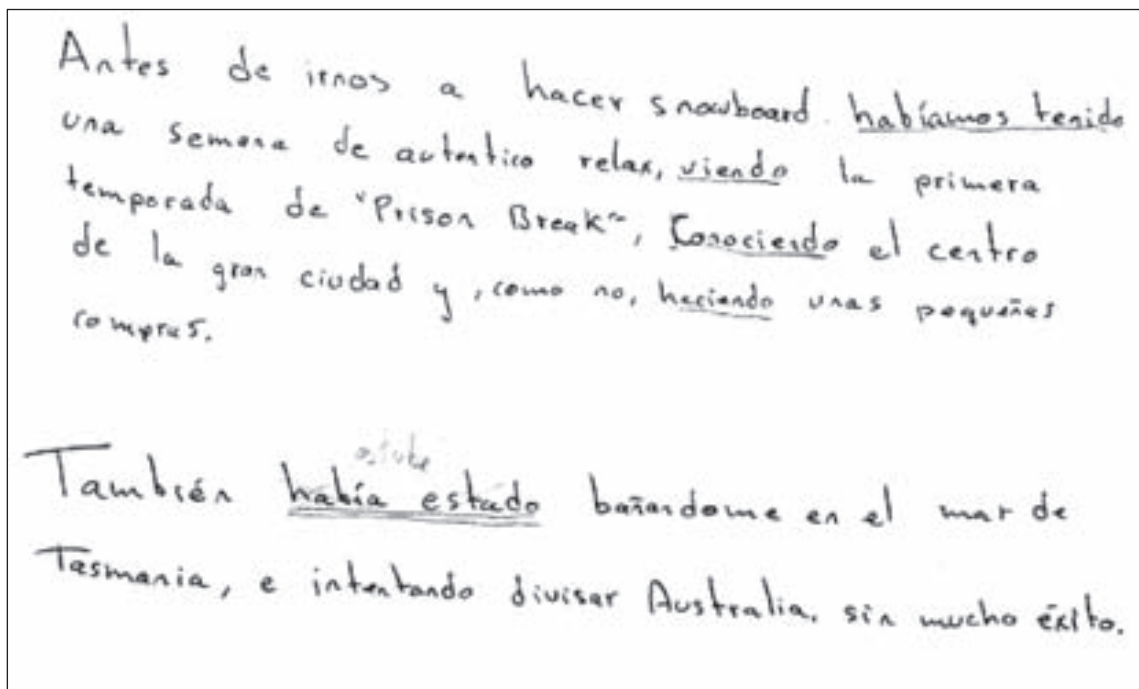 Antes de irnos a hacer snowboard. habíamos tenido
una semana de autentico relax, viendo la primera
temporada de "Prison Break", Conociendo el centro
de la gran ciudad y, como no, haciendo unas pequeñas
compras.
También había estado bañandome en el mar de
Tasmania, e intentando divisar Australia. sin mucho éxito.